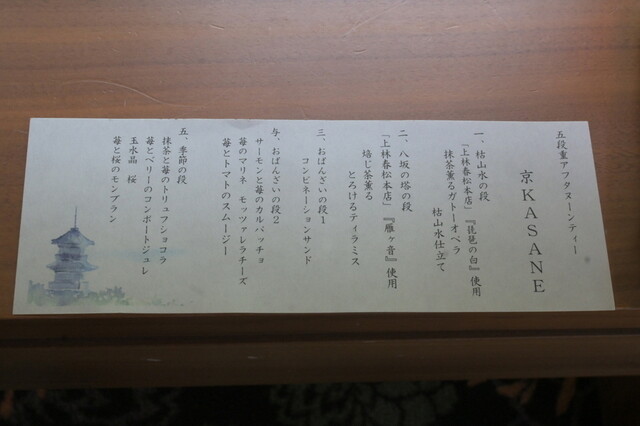 五段重アフタヌーンティー
京KASANE
一、枯山水の段
「上林春松本店」『琵琶の白』使用
抹茶薫るガトーオペラ
枯山水仕立て
二、八坂の塔の段
「上林春松本店」『雁ヶ音』使用
焙じ茶薫る
とろけるティラミス
三、おばんざいの段1
コンビネーションサンド
与、おばんざいの段2
サーモンと苺のカルパッチョ
苺のマリネ　モッツァレラチーズ
苺とトマトのスムージー
五、季節の段
抹茶と苺のトリュフショコラ
苺とベリーのコンポートジュレ
玉水晶　桜
苺と桜のモンブラン